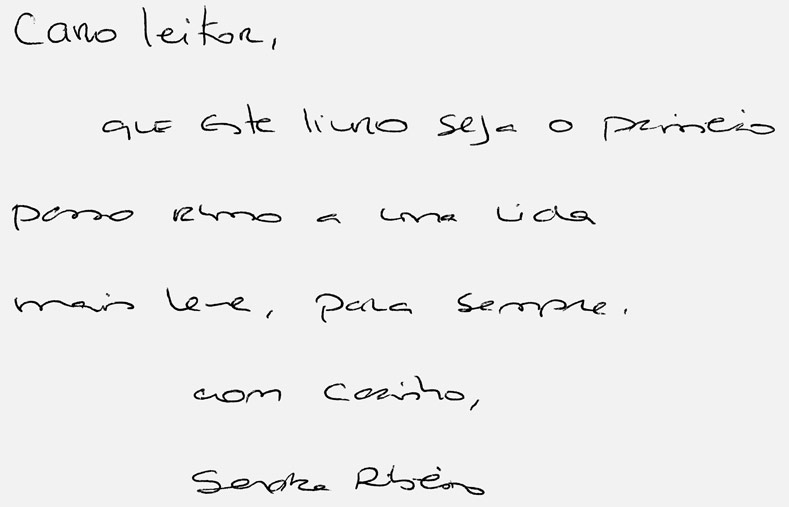 Caro leitor,
que este livro seja o primeiro
passo rumo a uma vida
mais leve, para sempre.
com carinho,
Sandra Ribeiro